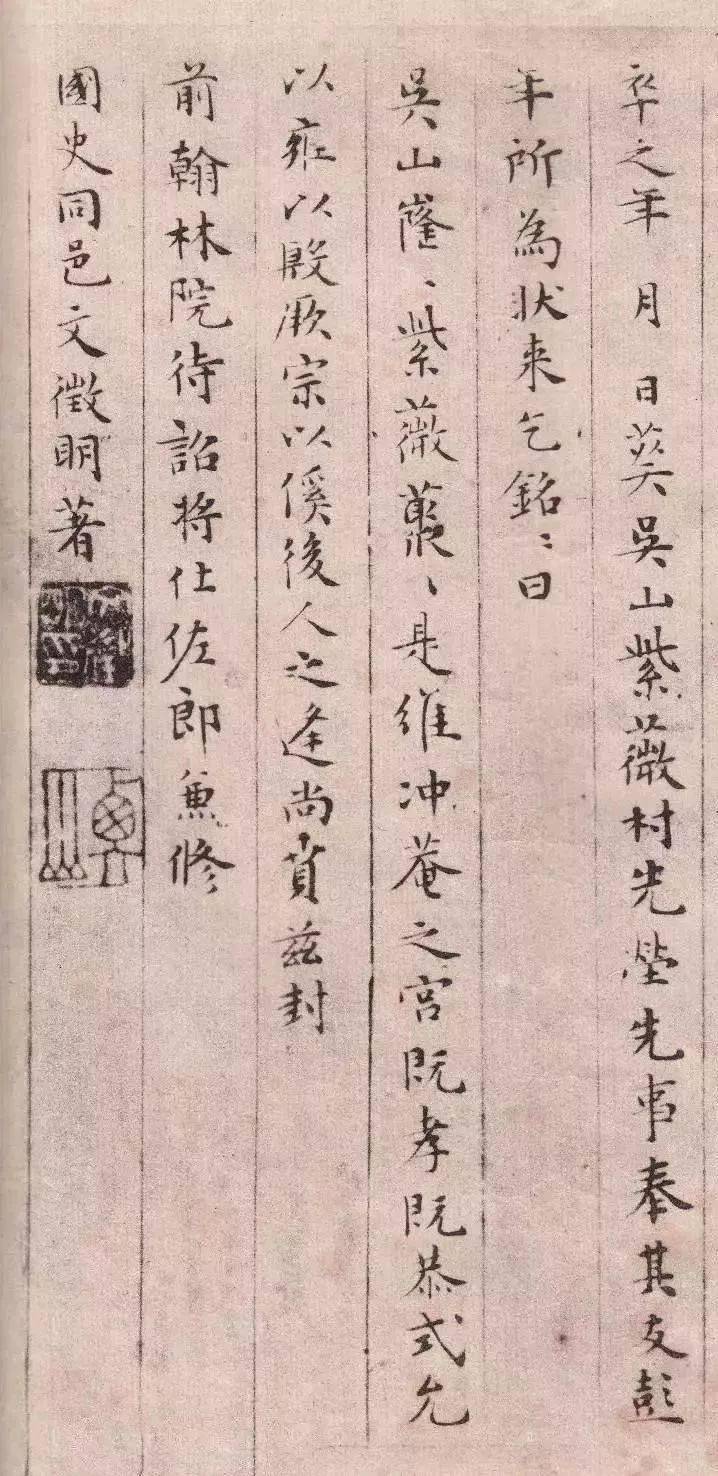 卒之年 月 日葬吳山紫薇村先塋先事奉其友彭
年所為狀来乞銘〻曰
吳山窿〻紫薇叢〻是維冲菴之宮既孝既恭式允
以雍以殷厥宗以傒後人之逢尚賁茲封
前翰林院待詔將仕佐郎兼修
國史同邑文徵明著